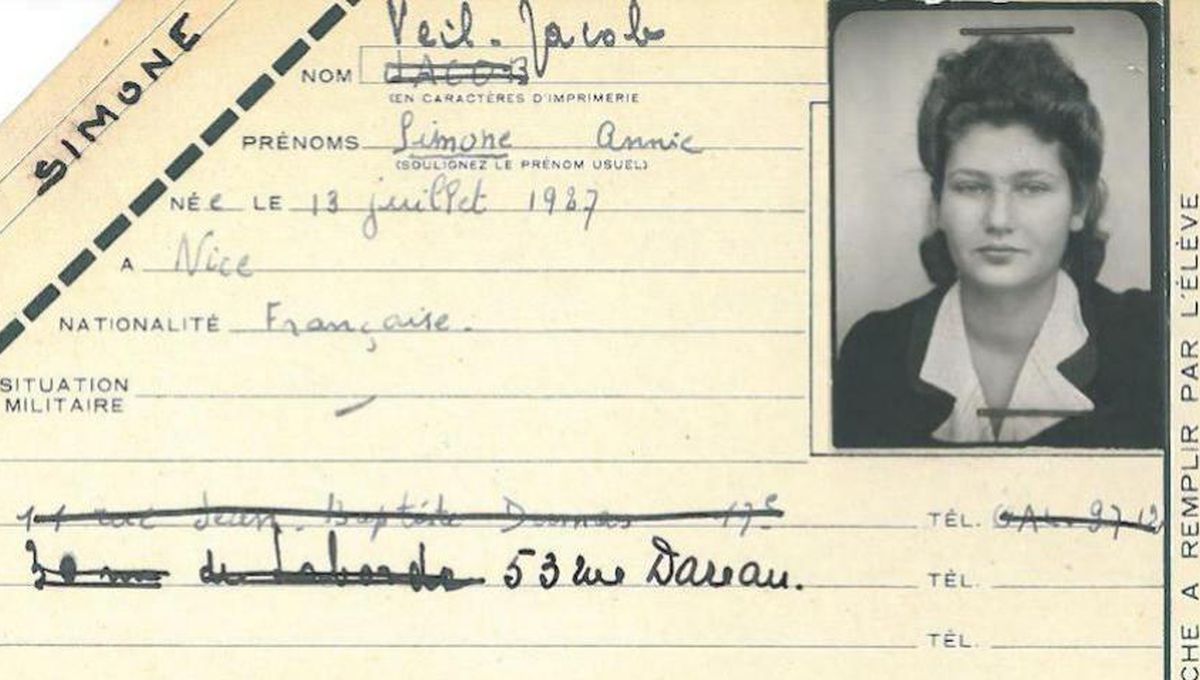 SIMONE
Veil - Jacob
NOM JACOB
(EN CARACTÈRES D'IMPRIMERIE
PRÉNOMS Simone Annie
(SOULIGNEZ LE PRÉNOM USUEL)
NÉe LE 13 juillet 1927
A Nice
NATIONALITÉ Française.
SITUATION
MILITAIRE
11 rue Jean-Baptiste Dumas 17e TÉL.
30 rue de Laborde 53 rue Dareau. TÉL.
TÉL.
CHE A REMPLIR PAR L'ÉLÈVE